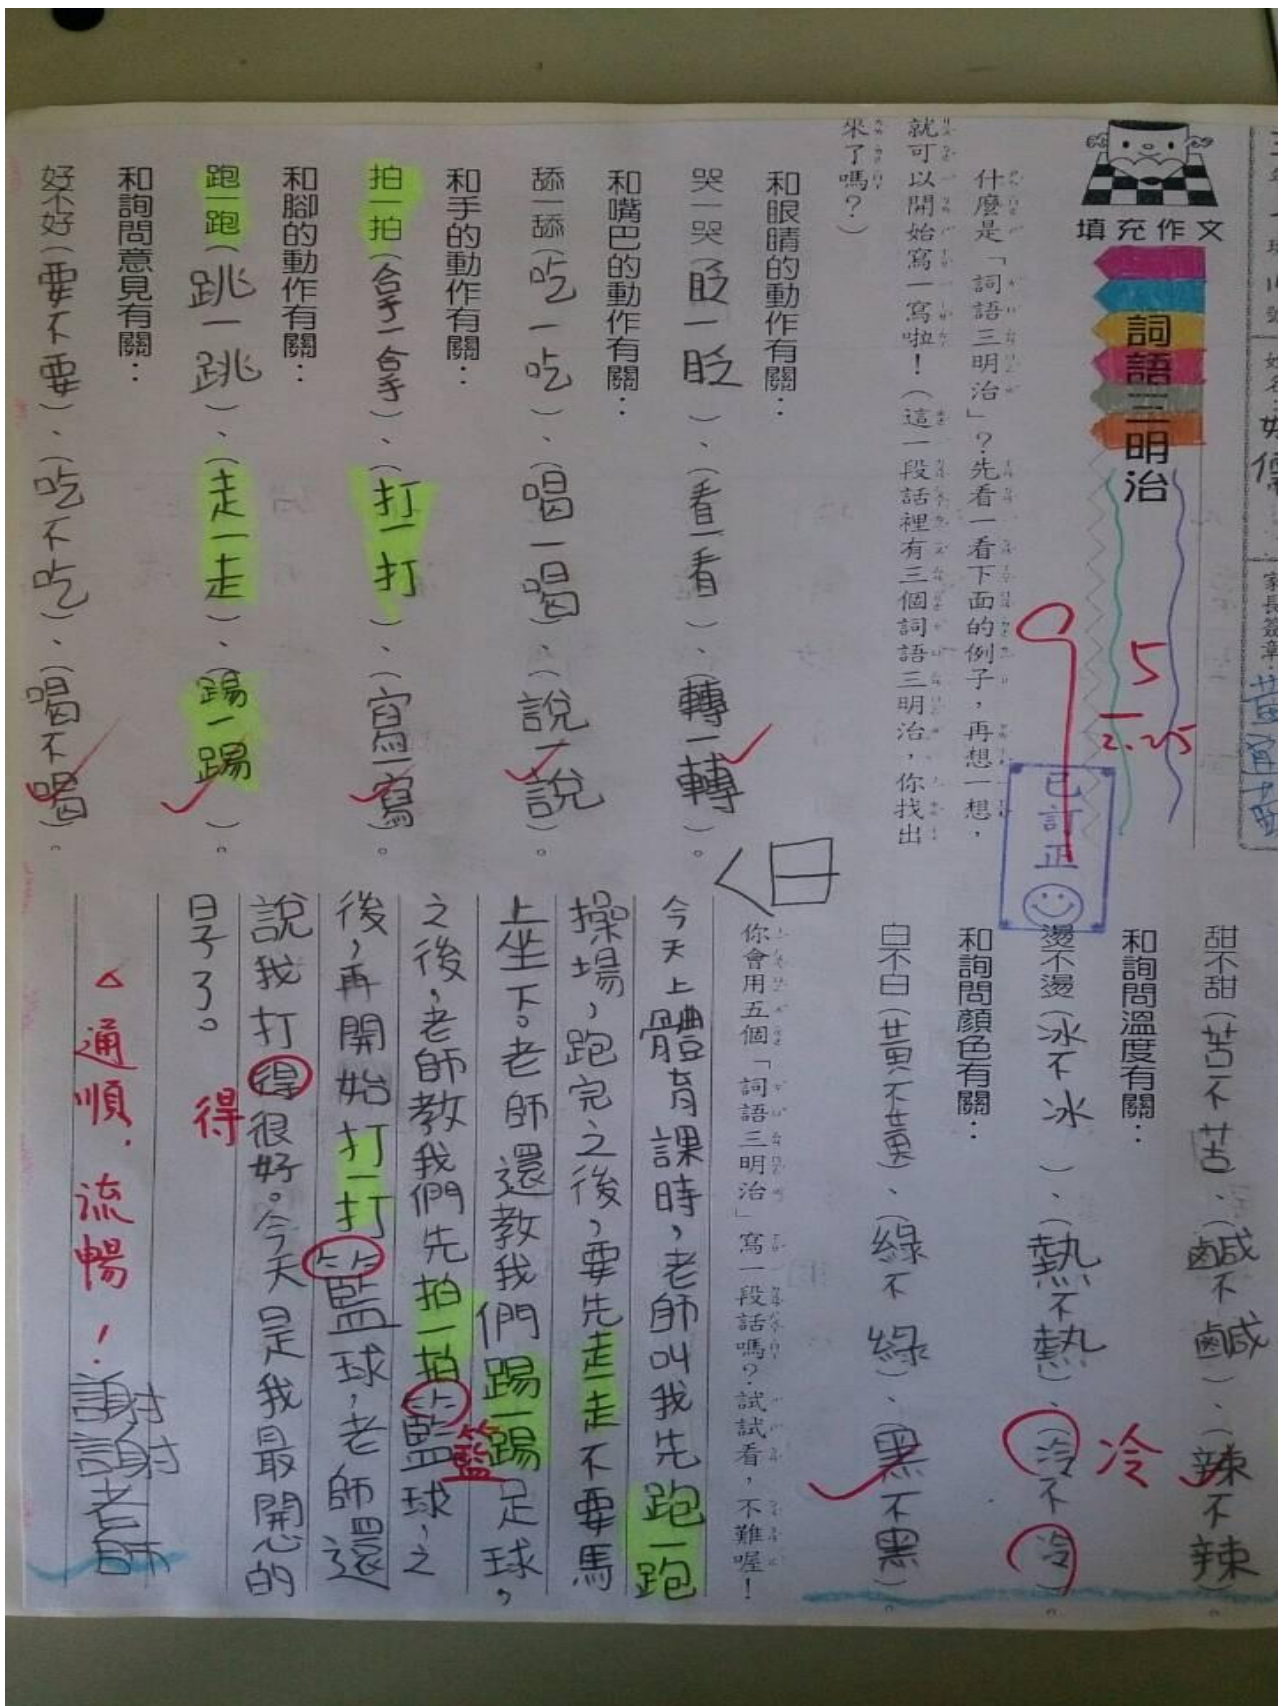 填充作文
詞語三明治
什麼是「詞語三明治」？先看一看下面的例子，再想一想，
就可以開始寫一寫啦！（這一段話裡有三個詞語三明治，你找出
來了嗎？）
和眼睛的動作有關：
哭一哭（眨一眨）、（看一看）、（轉一轉）。
和嘴巴的動作有關：
舔一舔（吃一吃）、（喝一喝）、（說一說）。
和手的動作有關：
拍一拍（合手一合手）、（打一打）、（寫一寫）。
和腳的動作有關：
跑一跑（跳一跳）、（走一走）、（踢一踢）。
和詢問意見有關：
好不好（要不要）、（吃不吃）、（喝不喝）。
家長簽章：
5
2.25
已訂正
甜不甜（苦不苦）、（鹹不鹹）、（辣不辣）。
和詢問溫度有關：
燙不燙（冰不冰）、（熱不熱）、（冷不冷）。
冷
和詢問顏色有關：
白不白（黃不黃）、（綠不綠）、（黑不黑）。
你會用五個「詞語三明治」寫一段話嗎？試試看，不難喔！
今天上體育課時，老師叫我先跑一跑
操場，跑完之後，要先走一走不要馬
上坐下。老師還教我們踢一踢足球，
之後，老師教我們先拍一拍籃球，之
籃
後，再開始打一打籃球，老師還
說我打得很好。今天是我最開心的
得
日子了。
通順．流暢！
謝謝老師